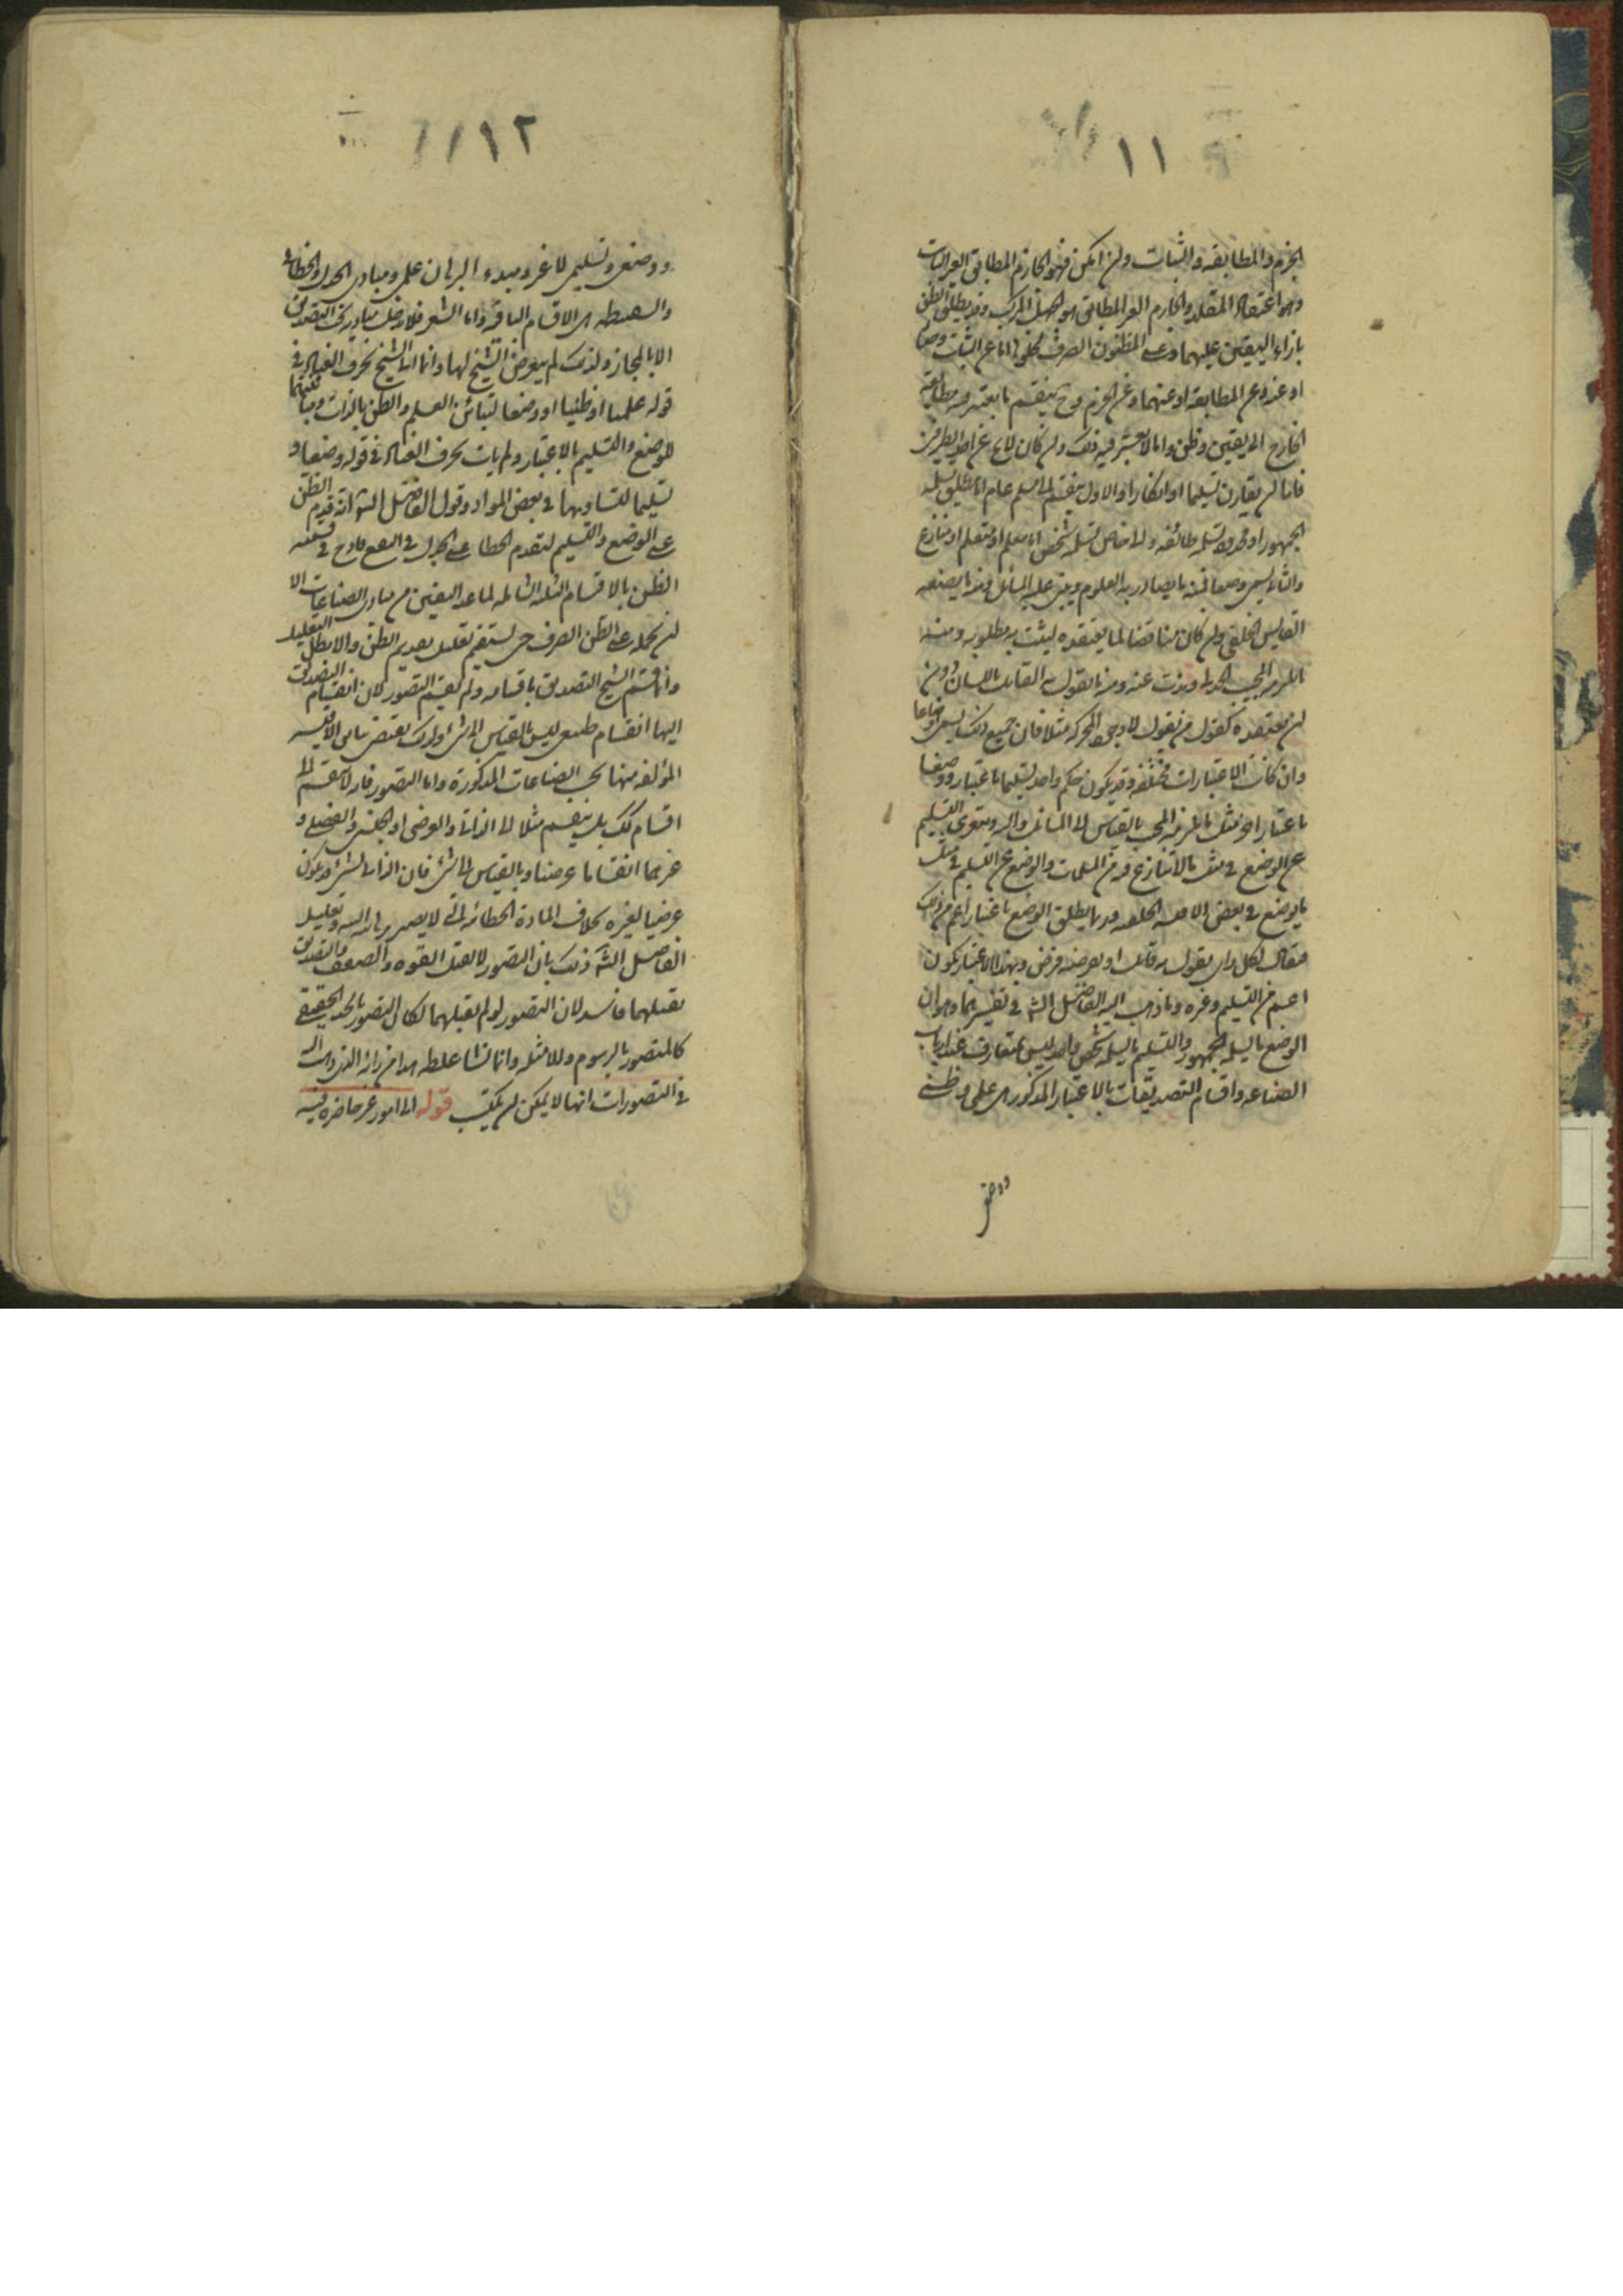 ١١
الجزم والمطابقة والثبات ولن امكن فهو الجازم المطابق الغير الثابت
وهو اعتقاد المقلد والجازم الغير المطابق هو الجهل المركب وقد يطلق الظن
بازاء اليقين عليهما وعلى المظنون الصرف لخلوها اما عن الثبات وحده
او عنه وعن المطابقة او عنهما وعن الجزم وح ينقسم ما يعتبر فيه مطابقة
الخارج الى يقين وظن واما ما لا يعتبر فيه ذلك ولن كان لا يخ عن احد الطرفين
فاما لن يقارن تسليما او انكارا والاول ينقسم الى مسلم عام اما مطلق يسلمه
الجمهور او محدود تسلمه طائفة والى خاص تسلمه شخص اما معلم او متعلم او منازع
والثاني يسمى وضعا فمنه ما يصادر به العلوم ويبنى عليه المسائل ومنه ما يضعه
القايس الخلفي ولن كان مناقضا لما يعتقده ليثبت به مطلوبه ومنه
ما يلتزمه المجيب الجدلي ويذب عنه ومنه ما يقول به القائل باللسان دون
لن يعتقده كقول من يقول لا وجود للحركة مثلا فان جميع ذلك يسمى اوضاعا
وان كانت الاعتبارات مختلفة وقد يكون حكم واحد تسليما باعتبار ووضعا
باعتبار اخر مثل ما يلتزمه المجيب بالقياس الى السائل واليه ويتعرى التسليم
عن الوضع في مثل ما لا تنازع فيه من المسلمات والوضع عن التسليم في مثل
ما يوضع في بعض الاقيسة الخلفية وربما يطلق الوضع باعتبار اعم من ذلك
فيقال لكل راى يقول به قائل او يفرضه فارض وبهذا الاعتبار يكون
اعم من التسليم وغيره وما ذهب اليه الفاضل الش في تفسيرهما وهو ان
الوضع ما يسلمه الجمهور والتسليم ما يسلمه شخص واحد ليس بمتعارف عند ارباب
الصناعة واقسام التصديقات بالاعتبار المذكور هى علمى وظنى
ووضعى
١٢
ووضعى وتسليمى لا غير ومبدء البرهان علمى ومبادى الجدل والخطابة
والسفسطة هى الاقسام الباقية واما الشعر فلا يدخل مباديه تحت التصديق
الا بالمجاز ولذلك لم يتعرض الشيخ لها وانما اتى الشيخ بحرف العناد في
قوله علميا او ظنيا او وضعا لتباين العلم والظن بالذات ومباينتهما
للوضع والتسليم بالاعتبار ولم يات بحرف العناد في قوله وضعا و
تسليما لتشاركهما في بعض المواد وقول الفاضل الش انه قدم الظن
على الوضع والتسليم لتقدم الخطابة على الجدل في النفع قادح في قسمة
الظن بالاقسام الثلثة الشاملة لما عدا اليقين من مبادى الصناعات الا
لن يحمله على الظن الصرف حتى يستقيم تعليل تقديم الظن والا بطل التعليل
وانما قسم الشيخ التصديق باقسامه ولم يقسم التصور لان انقسام التصديق
اليها انقسام طبيعى ليس بالقياس الى شىء ولذلك يقتضى تباين الاقيسة
المؤلفة منها بحسب الصناعات المذكورة واما التصور فانه لا ينقسم الى
اقسام كك بل ينقسم مثلا الى الذاتى والعرضى او الجنس والفصل و
غيرهما انقساما عرضيا وبالقياس الى شىء فان الذاتى لشىء قد يكون
عرضيا لغيره بخلاف المادة الخطابية التى لا يصير برهانية البتة وتعليل
الفاضل الش ذلك بان التصور لا يقبل القوة والضعف والتصديق
يقبلهما فاسد لان التصور لو لم يقبلهما لكان التصور بالحد الحقيقى
كالتصور بالرسوم وللامثلة وانما نشا غلطه هذا من رايه الذى ذهب اليه
في التصورات انها لا يمكن لن يكتسب قوله الى امور غير حاضرة فيه